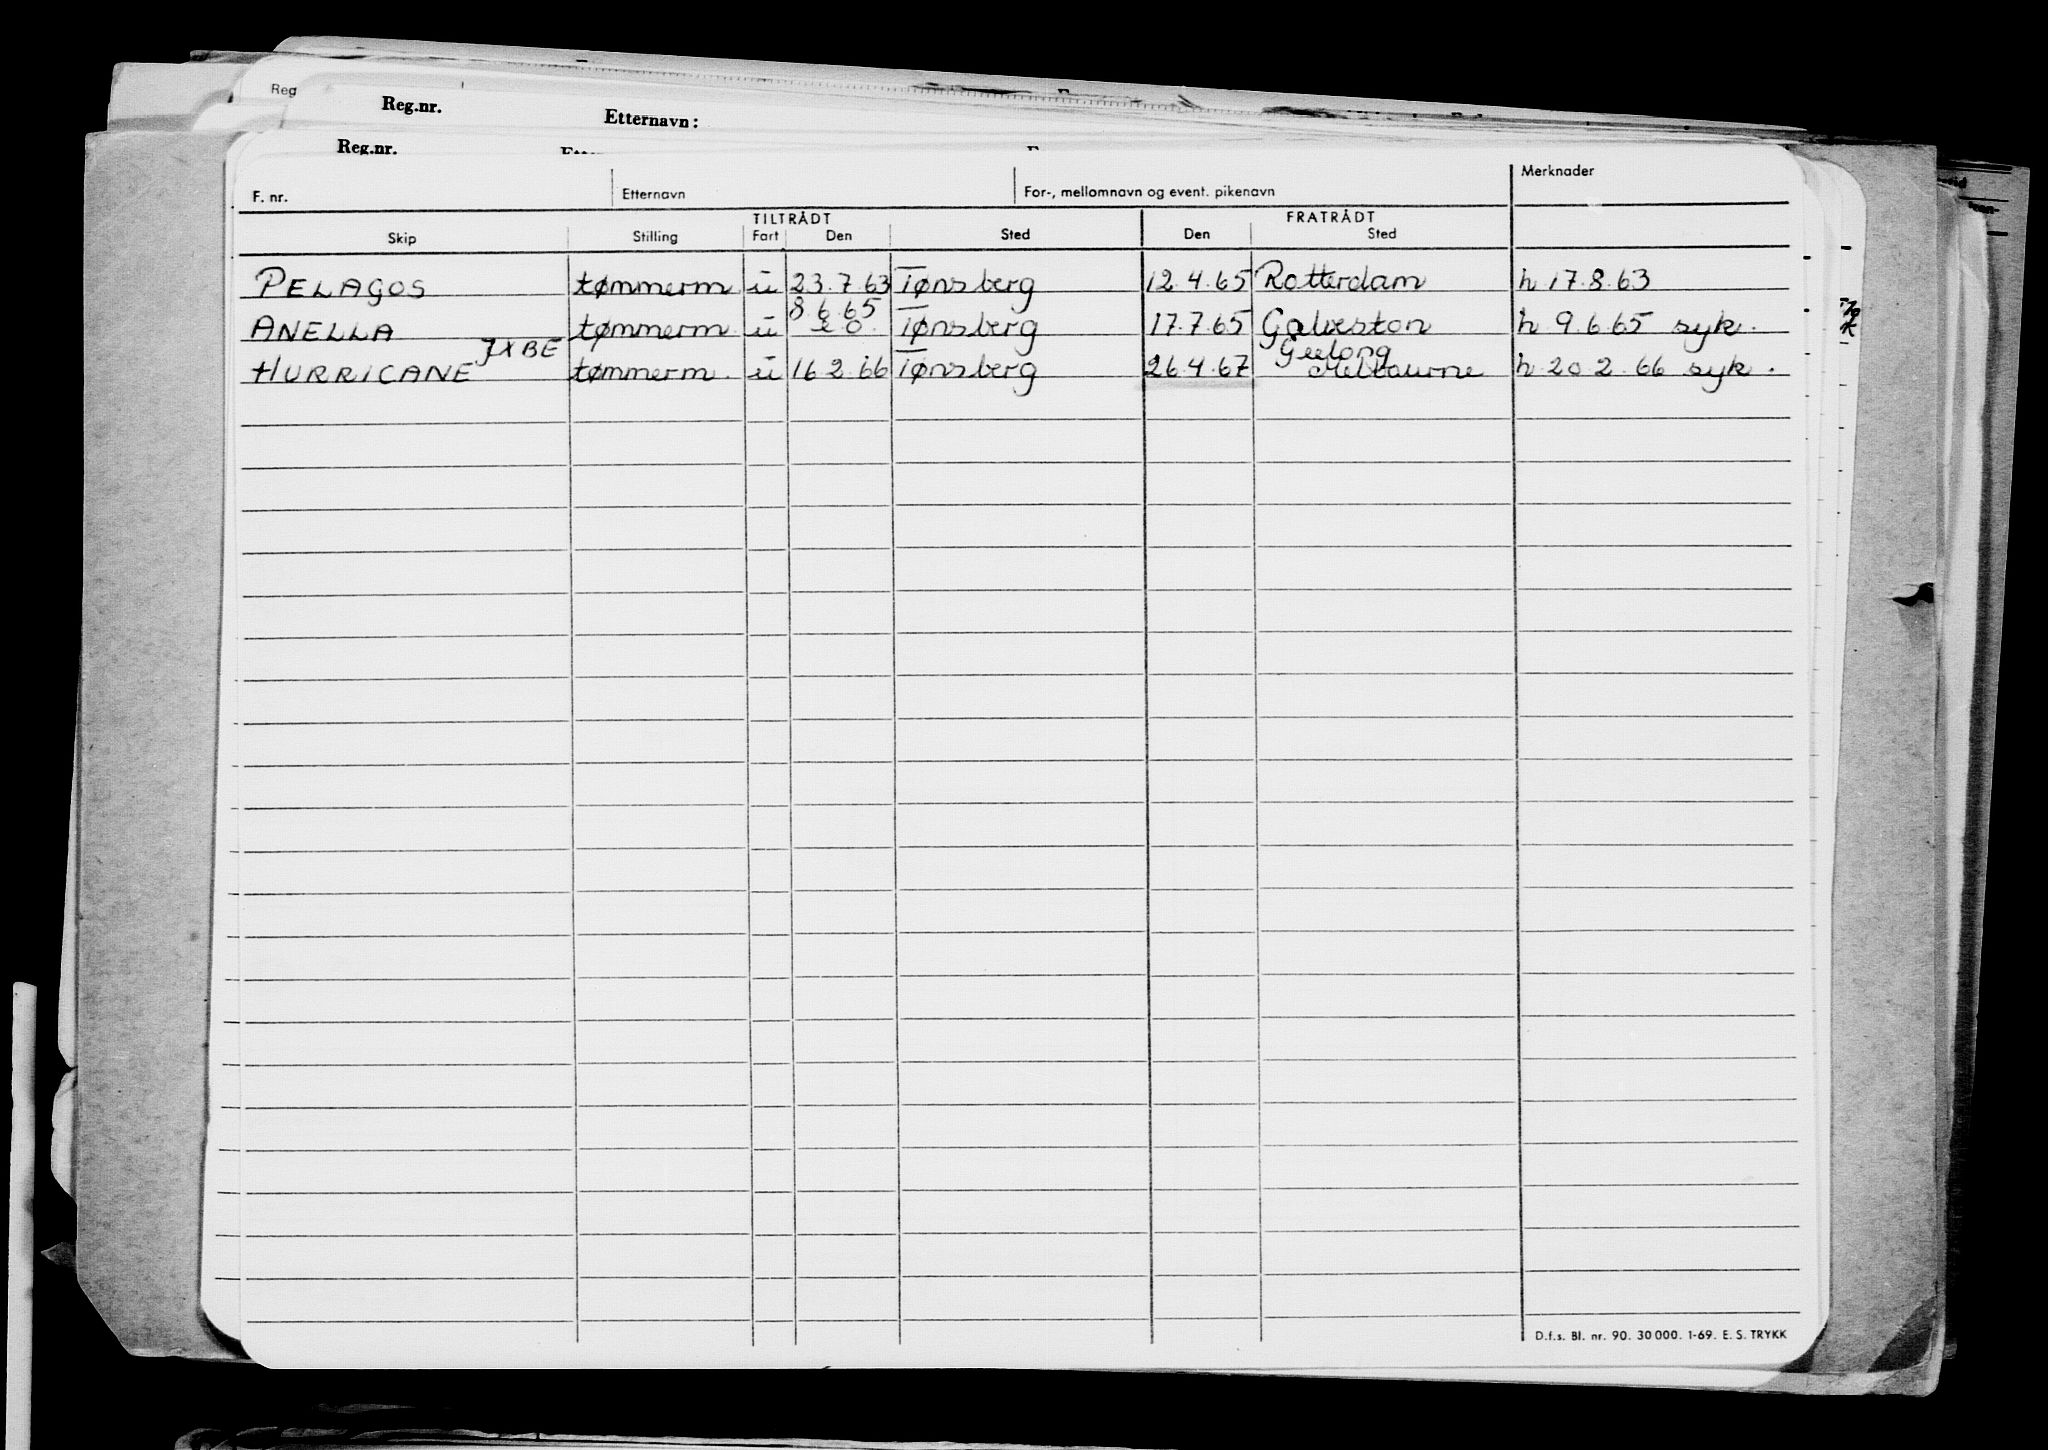 Reg
Reg.nr. Etternavn:
Reg.nr.
F. nr. Etternavn For-, mellomnavn og event. pikenavn Merknader
TILTRÅDT FRATRÅDT
Skip Stilling Fart Den Sted Den Sted
PELAGOS tømmerm u 23.7.63 Tønsberg 12.4.65 Rotterdam h 17.8.63
8.6.65
ANELLA tømmerm. u Tønsberg 17.7.65 Galveston h 9.6.65 syk.
JXBE Geelong
HURRICANE tømmerm. u 16.2.66 Tønsberg 26.4.67 Melbourne h 20.2.66 syk.
D.f.s. Bl. nr. 90. 30 000. 1-69. E. S. TRYKK